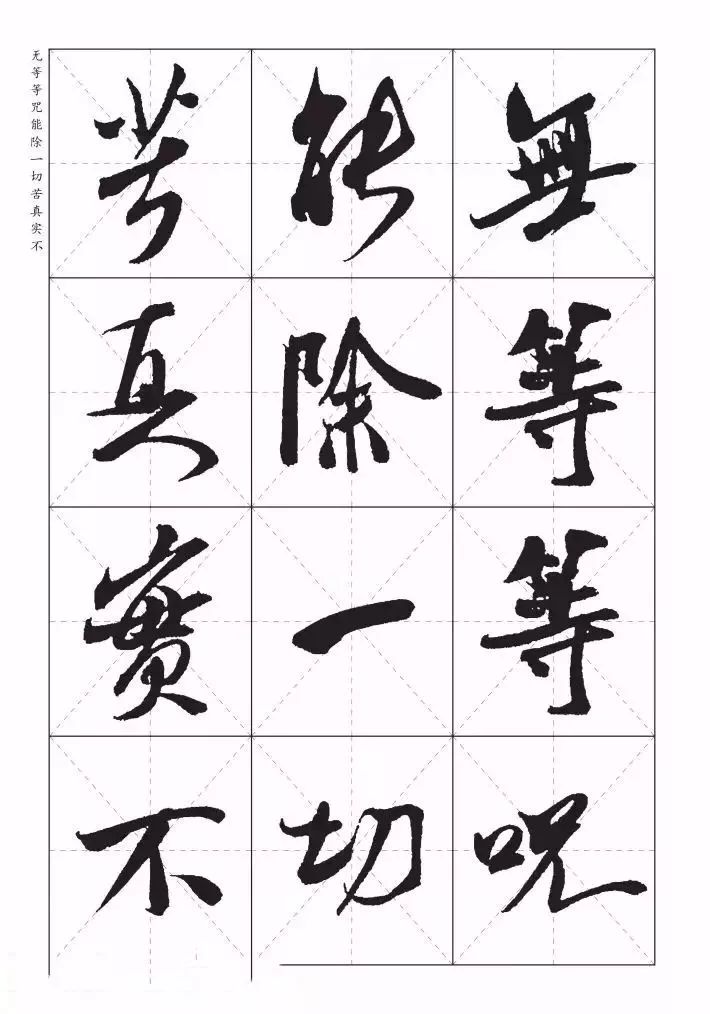 無等等呪
能除一切
苦真實不
无等等咒能除一切苦真实不